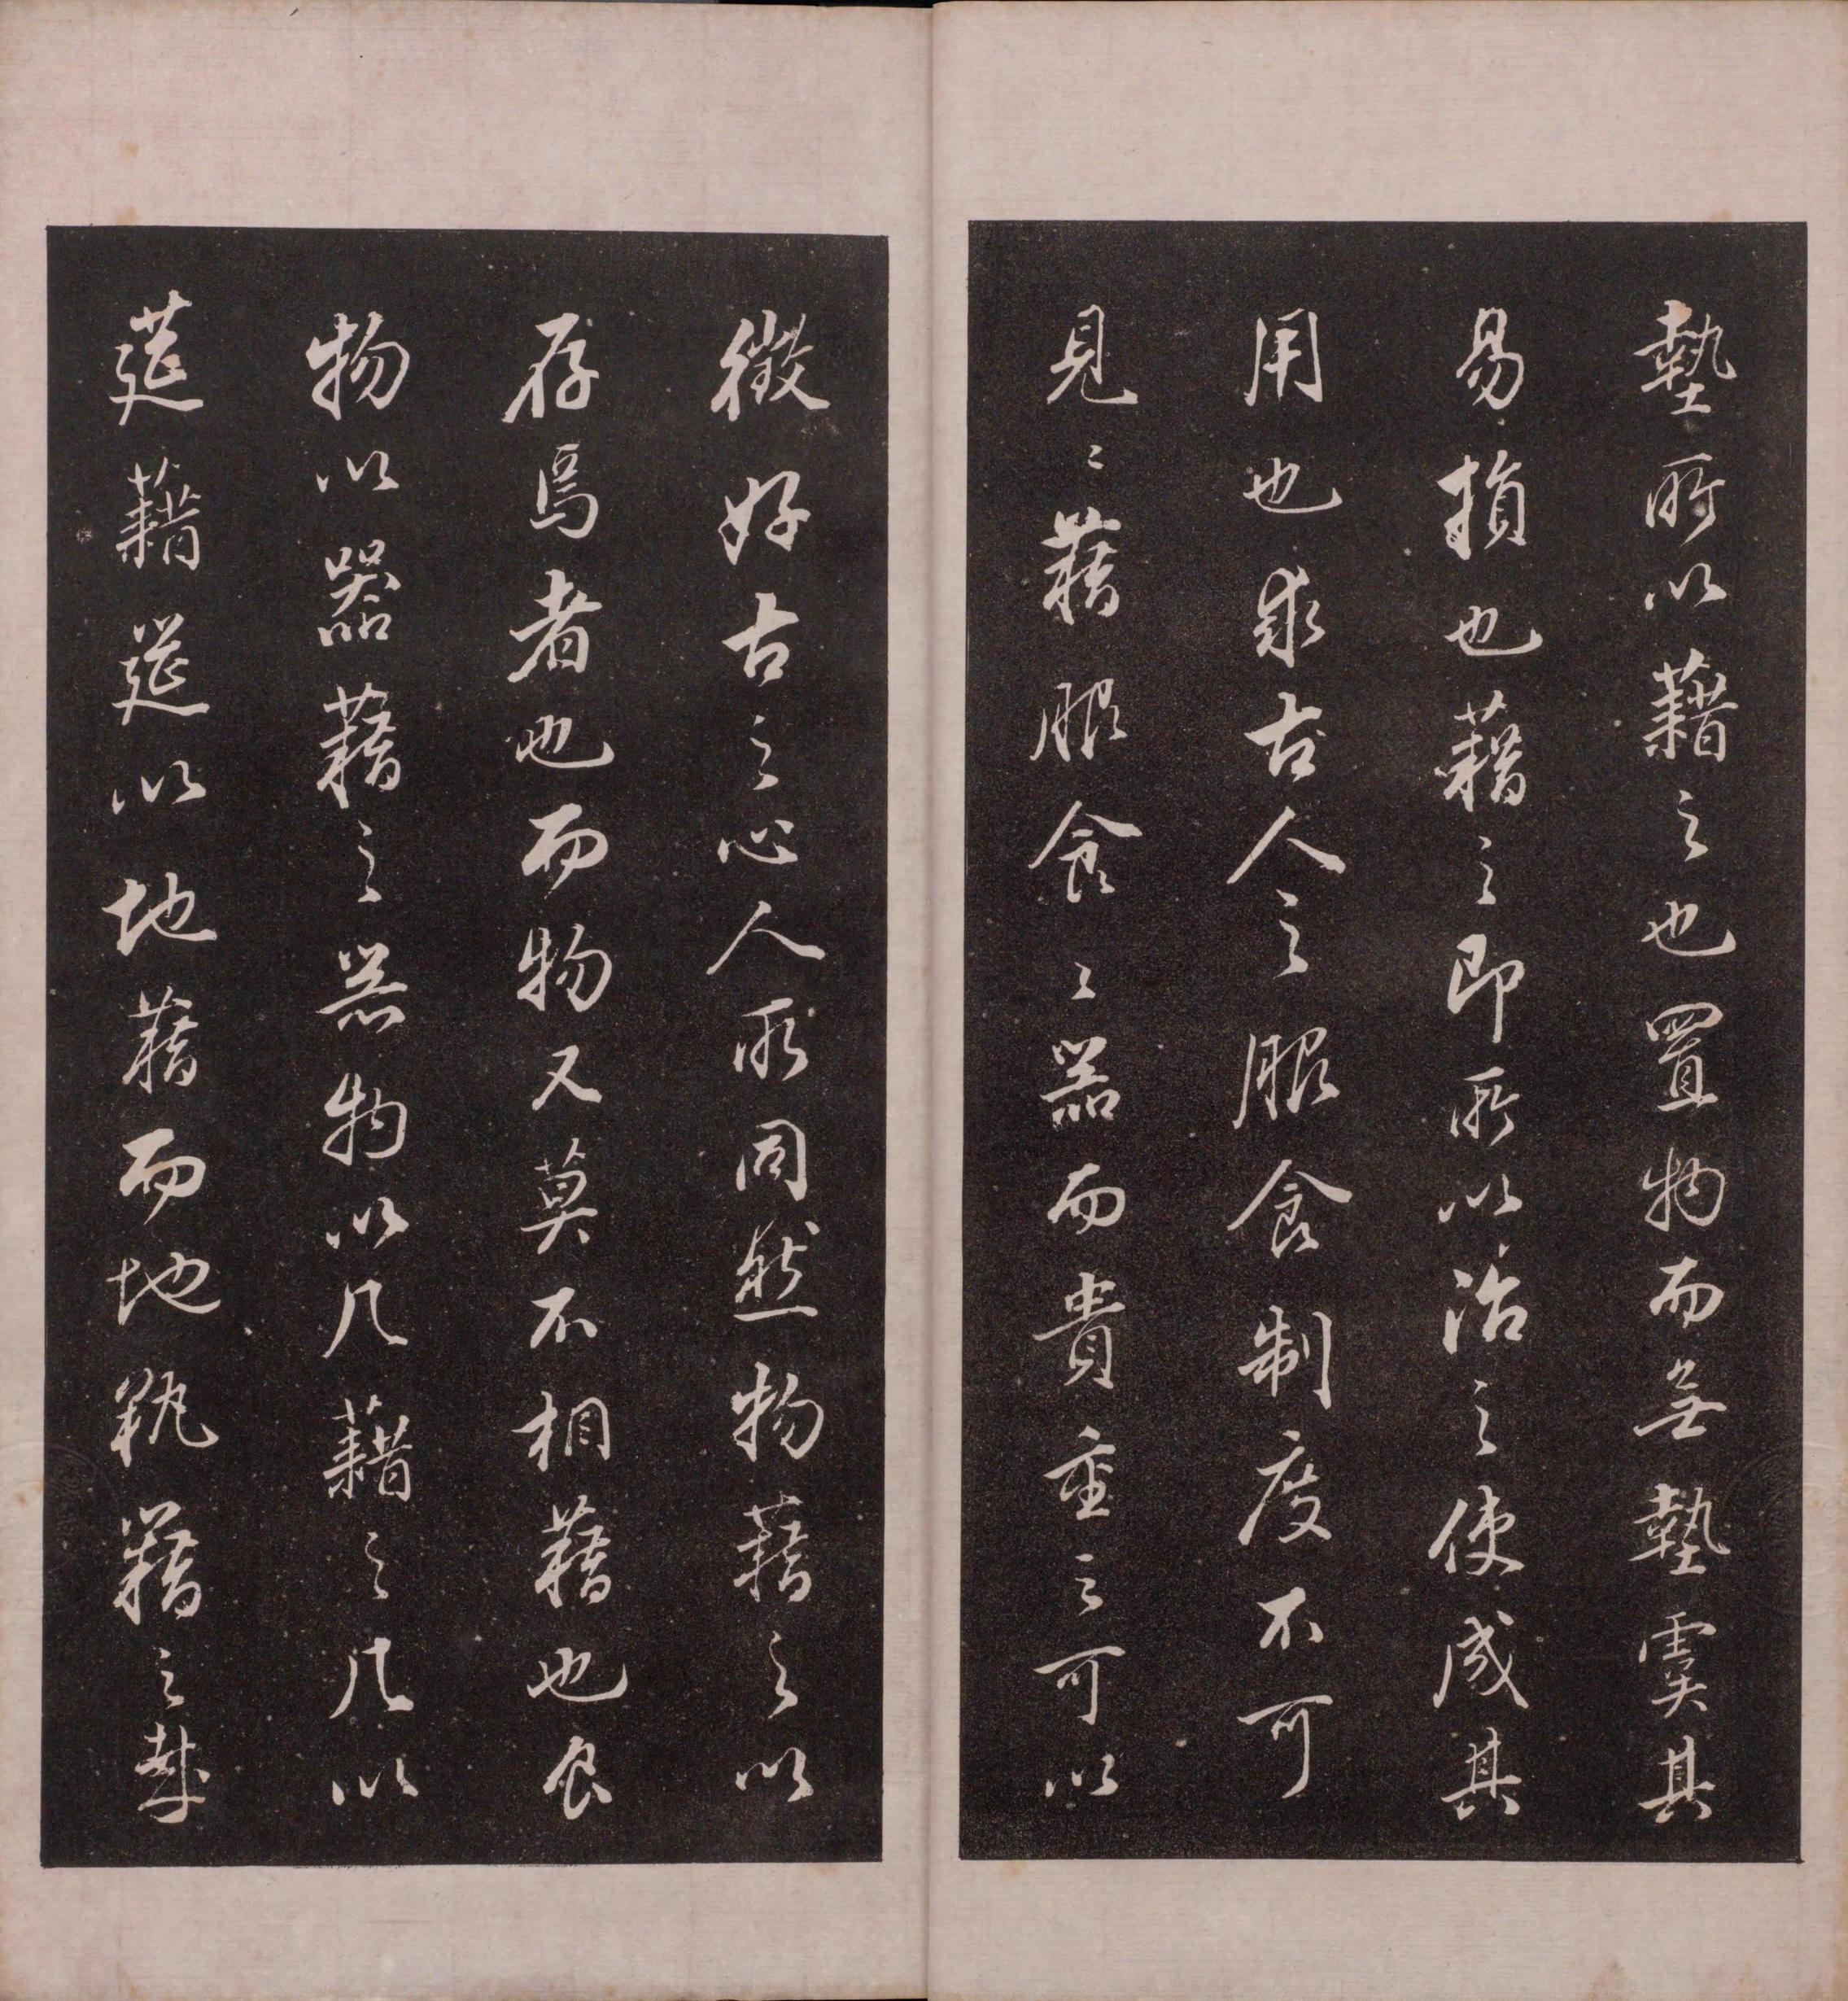 墊所以藉之也置物而無墊虞其
易損也藉之即所以治之使成其
用也求古人之服食制度不可
見〻藉服食〻器而貴重之可以
徵好古之心人所同然物藉之以
存焉者也而物又莫不相藉也食
物以器藉之器物以几藉之几以
筵藉筵以地藉而地孰藉之